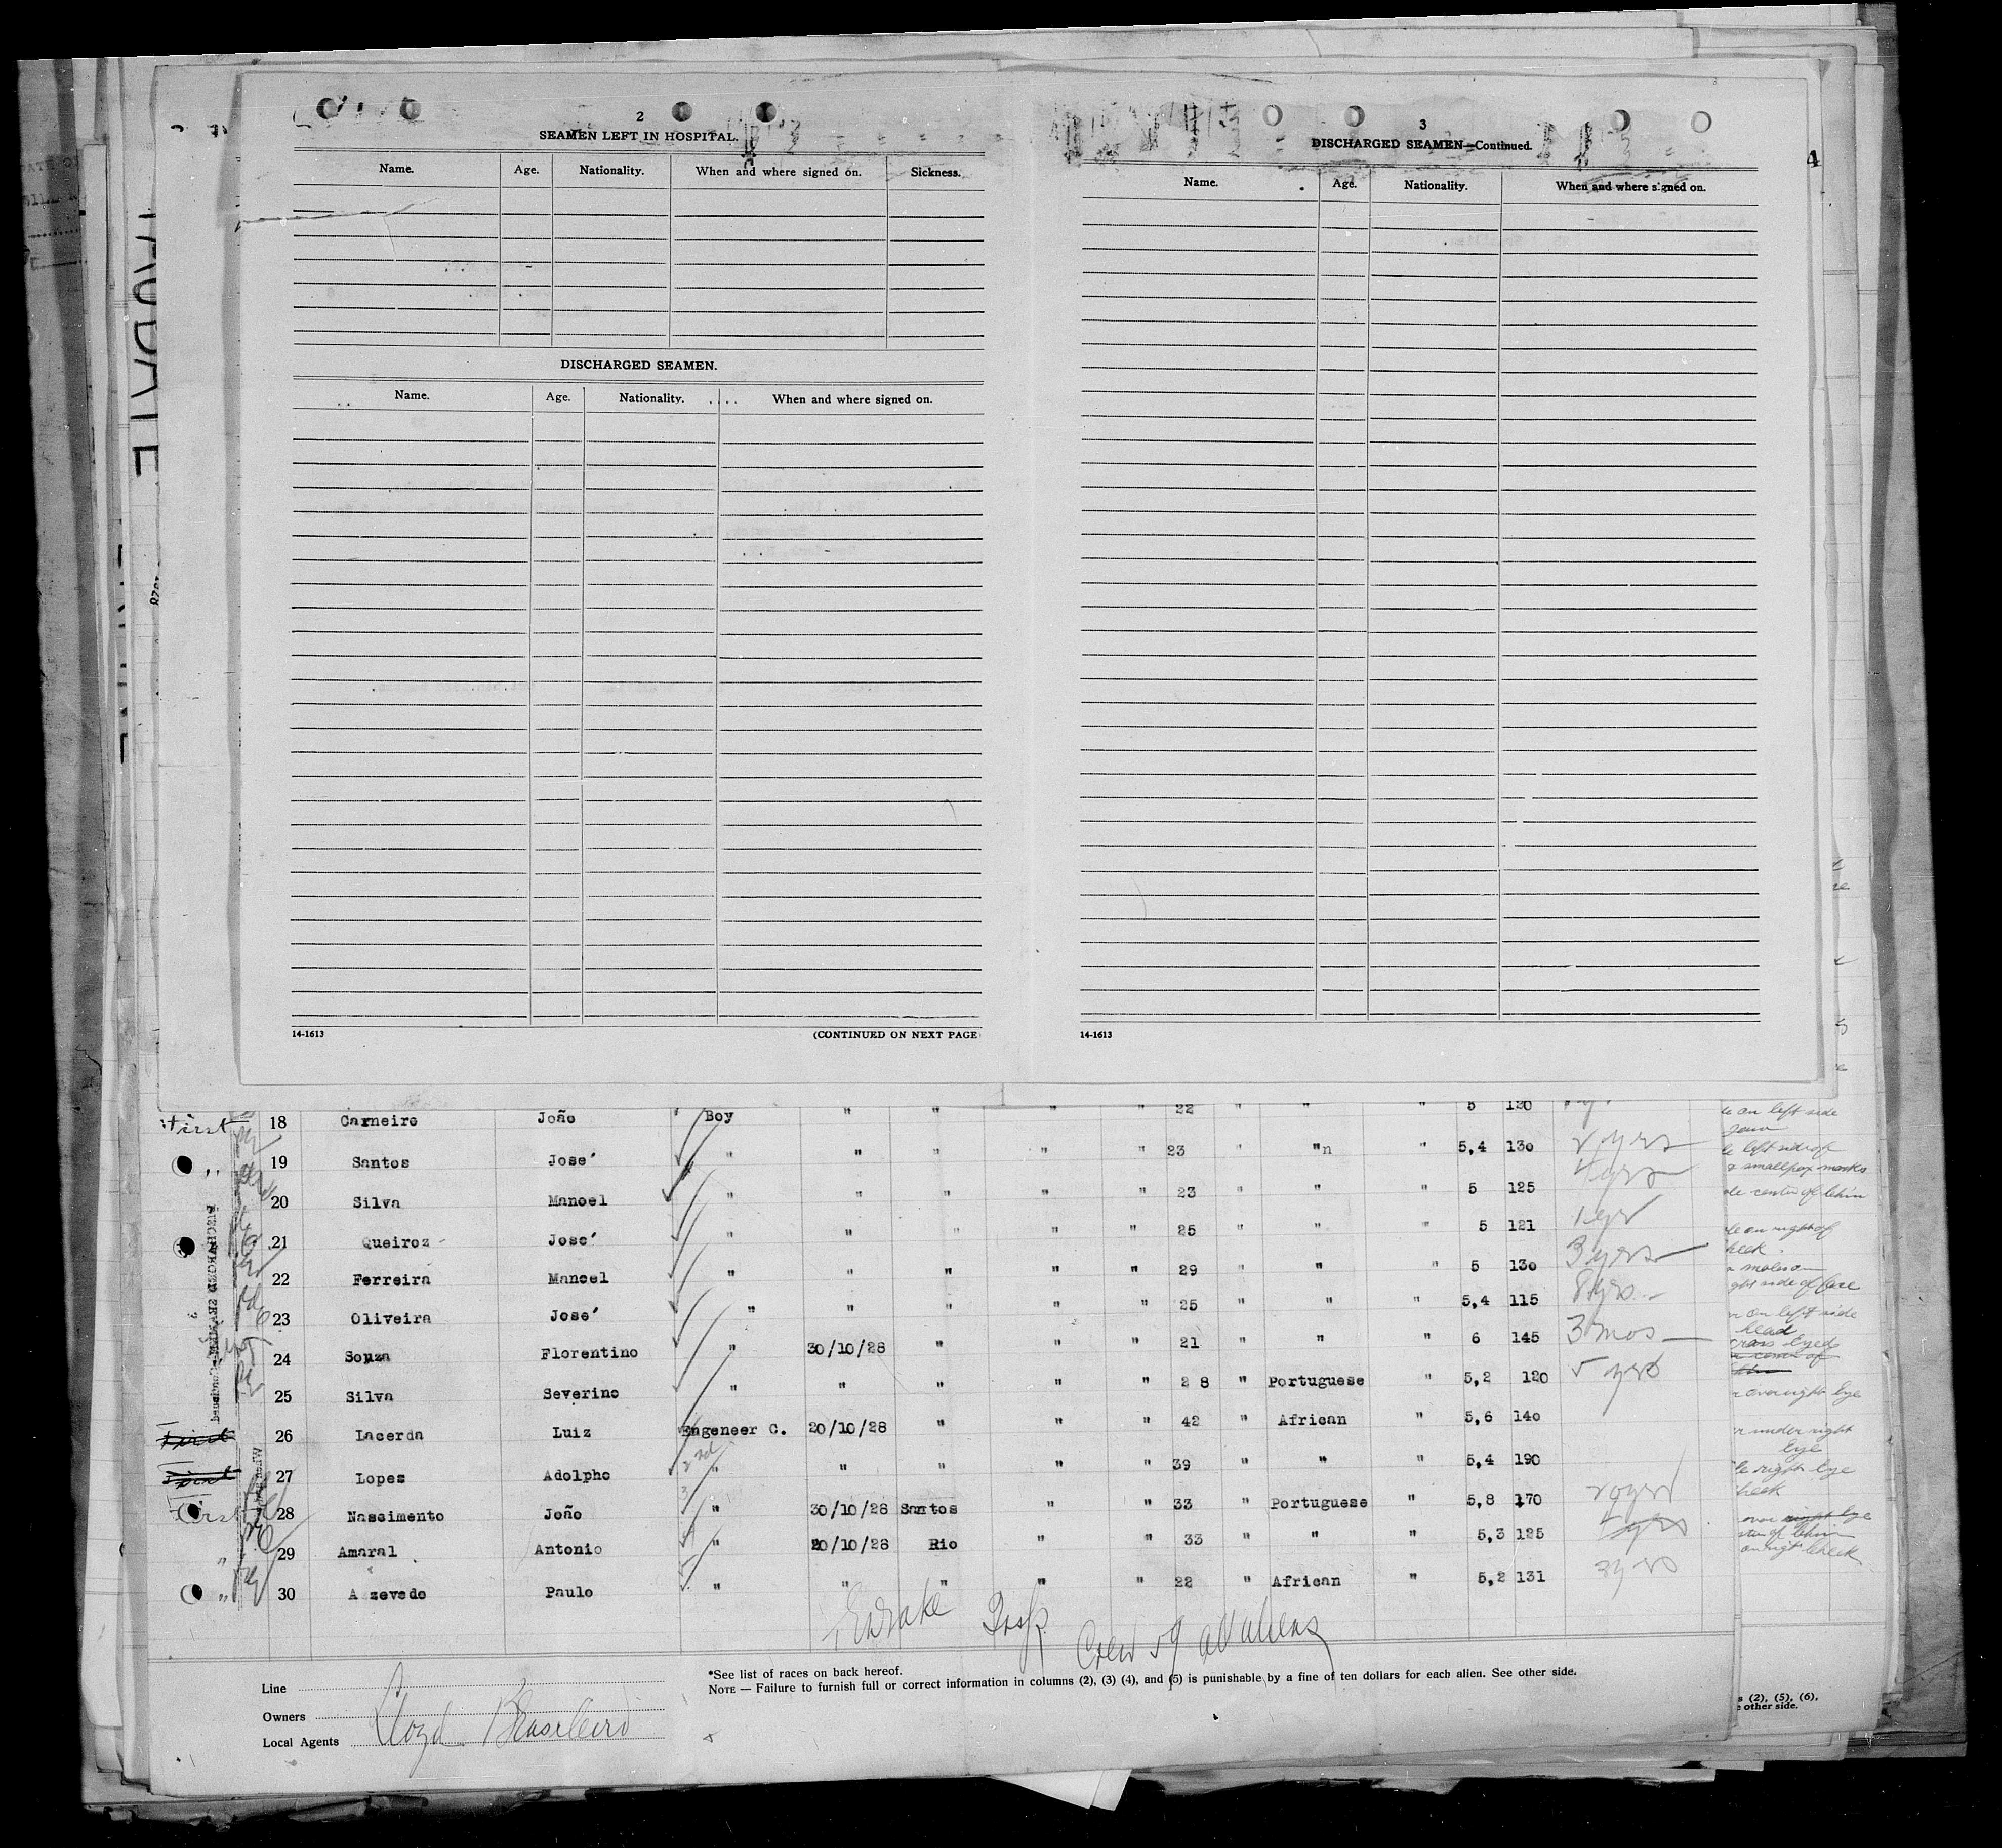 2
SEAMEN LEFT IN HOSPITAL.
Name. Age. Nationality. When and where signed on. Sickness.
DISCHARGED SEAMEN.
Name. Age. Nationality. When and where signed on.
14-1613 (CONTINUED ON NEXT PAGE
3
DISCHARGED SEAMEN—Continued.
Name. Age. Nationality. When and where signed on.
14-1613
4
First 18 Carneiro João Boy " " " " 22 " " " 5 120
" 19 Santos José " " " " " 23 " "n " 5,4 130 2 yrs
20 Silva Manoel " " " " " 23 " " " 5 125 4 yrs
21 Queiroz José " " " " " 25 " " " 5 121 1 yr
22 Ferreira Manoel " " " " " 29 " " " 5 130 3 yrs
23 Oliveira José " " " " " 25 " " " 5,4 115 8 yrs
24 Souza Florentino " 30/10/28 " " " 21 " " " 6 145 3 mos
25 Silva Severino " " " " " 28 " Portuguese " 5,2 120 5 yrs
First 26 Lacerda Luiz Engeneer C. 20/10/28 " " " 42 " African " 5,6 140
First 27 Lopes Adolpho 2nd " " " " " 39 " " " 5,4 190
First 28 Nascimento João 3 " 30/10/28 Santos " " 33 " Portuguese " 5,8 170
" 29 Amaral Antonio 4 " 20/10/28 Rio " " 33 " " " 5,3 125
" 30 Azevedo Paulo 5 " " " " " 22 " African " 5,2 131
on left side
left side of
smallpox marks
center of chin
on right of
cheek
right side of face
on left side
head
cross eyed
over right eye
under right
eye
right eye
cheek
over right eye
on right cheek
DISCHARGED SEAMEN—Continued
Drake Insp. Crew 59 all aliens
*See list of races on back hereof.
NOTE — Failure to furnish full or correct information in columns (2), (3) (4), and (5) is punishable by a fine of ten dollars for each alien. See other side.
Line
Owners
Local Agents Lloyd Brasileiro
s (2), (5), (6),
e other side.